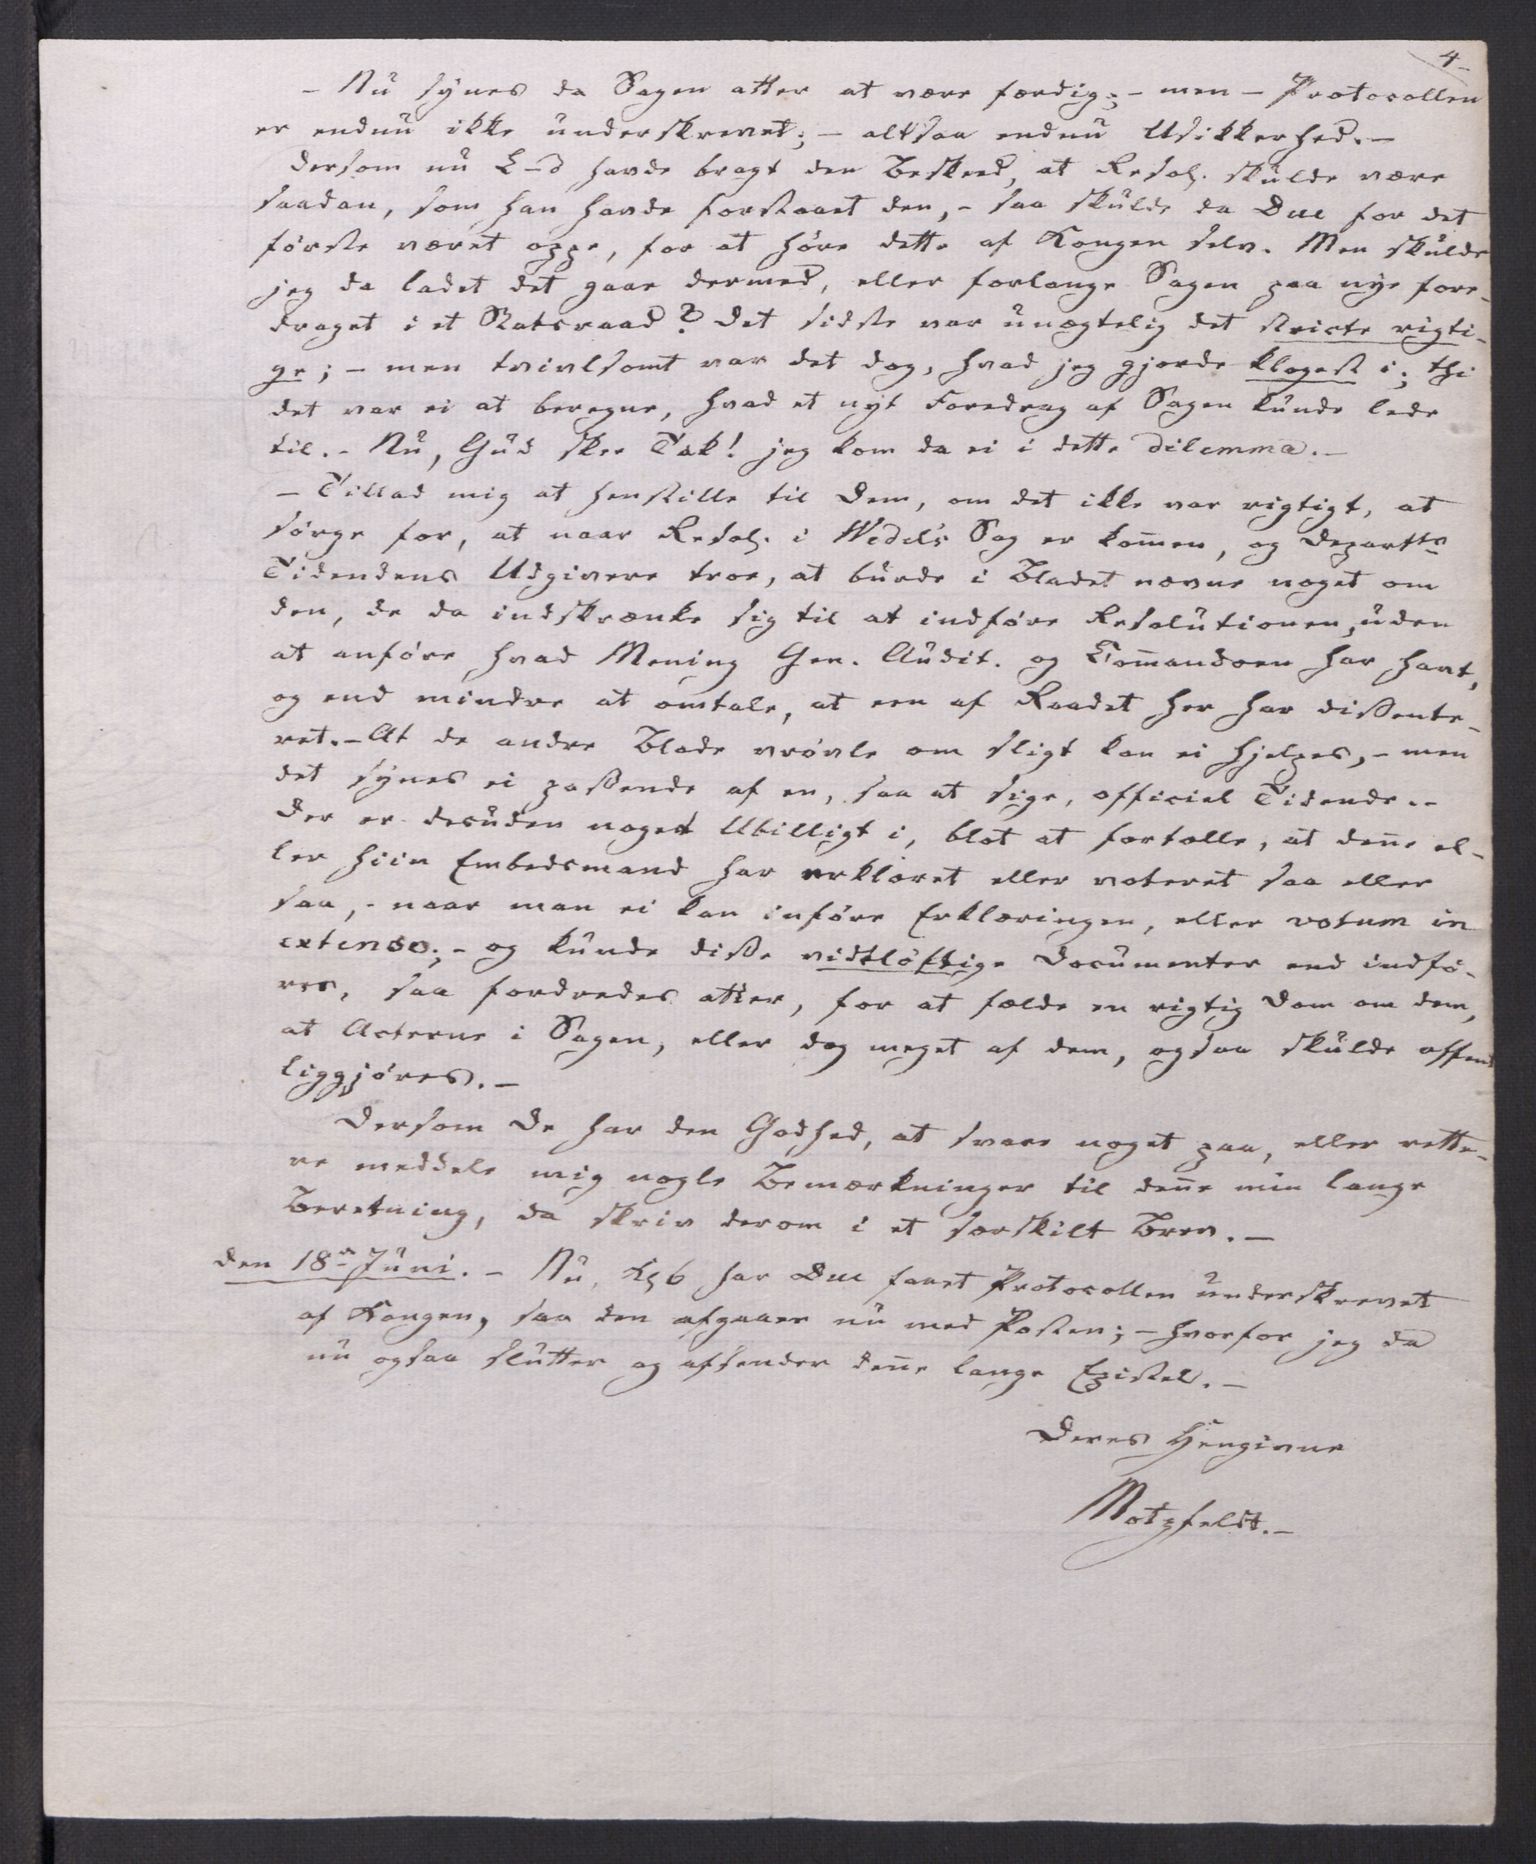 4-
- Nu synes da Sagen atter at være færdig; - men - Protocollen
er endnu ikke underskrevet; - altsaa endnu Usikkerhed. -
Dersom nu L-d havde bragt den Beskeed, at Resol. skulde være
saadan, som han havde forstaaet den, - saa skulde da Due for det
første været oppe, for at høre dette af Kongen selv. Men skulde
jeg da ladet det gaae dermed, eller forlange Sagen paa nye fore-
draget i et Statsraad? Det sidste var unægtelig det stricte rigti-
ge; - men tvivlsomt var det dog, hvad jeg gjorde klogest i; thi
det var ei at beregne, hvad et nyt Foredrag af Sagen kunde lede
til. - Nu, Gud skee Tak! jeg kom da ei i dette dilemma. -
- Tillad mig at henstille til Dem, om det ikke var rigtigt, at
sørge for, at naar Resol. i Wedels Sag er kommen, og Departts
Tidendens Udgivere troe, at burde i Bladet nævne noget om
den, de da indskrænke sig til at indføre Resolutionen, uden
at anføre hvad Mening Gen. Audit. og Commandoen har havt,
og end mindre at omtale, at een af Raadet her har dissente-
ret. - At de andre Blade vrøvle om sligt kan ei hjelpes, - men
det synes ei passende af en, saa at sige, officiel Tidende. -
Der er desuden noget Ubilligt i, blot at fortælle, at denne el-
ler hiin Embedsmand har erklæret eller voteret saa eller
saa, - naar man ei kan inføre Erklæringen, eller votum in
extenso; - og kunde disse vidtløftige Documenter end indfø-
res, saa fordredes atter, for at fælde en rigtig Dom om dem,
at Acterne i Sagen, eller dog meget af dem, ogsaa skulde offent
liggjøres. -
Dersom De har den Godhed, at svare noget paa, eller rette-
re meddele mig nogle Bemærkninger til denne min lange
Beretning, da skriv derom i et særskilt Brev. -
den 18de Juni. - Nu, Kl 6 har Due faaet Protocollen underskrevet
af Kongen, saa den afgaaer nu med Posten; - hvorfor jeg da
nu ogsaa slutter og afsender denne lange Epistel. -
Deres Hengivne
Motzfeldt. -